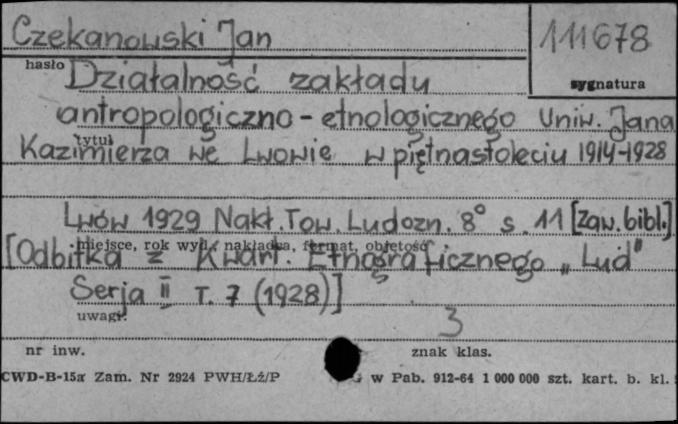 Czekanowski Jan
111678
hasło
sygnatura
Działalność zakładu
antropologiczno-etnologicznego Uniw. Jana
tytuł
Kazimierza we Lwowie w piętnastoleciu 1914-1928
Lwów 1929 Nakł. Tow. Ludozn. 8° s. 11 [Zaw. bibl.]
miejsce, rok wyd., nakładca, format, objętość
[Odbitka z Kwart. Etnograficznego „Lud"
Serja II T. 7 (1928)]
uwagi:
3
nr inw.
znak klas.
CWD-B-15a Zam. Nr 2924 PWH/Łź/P
w Pab. 912-64 1 000 000 szt. kart. b. kl.